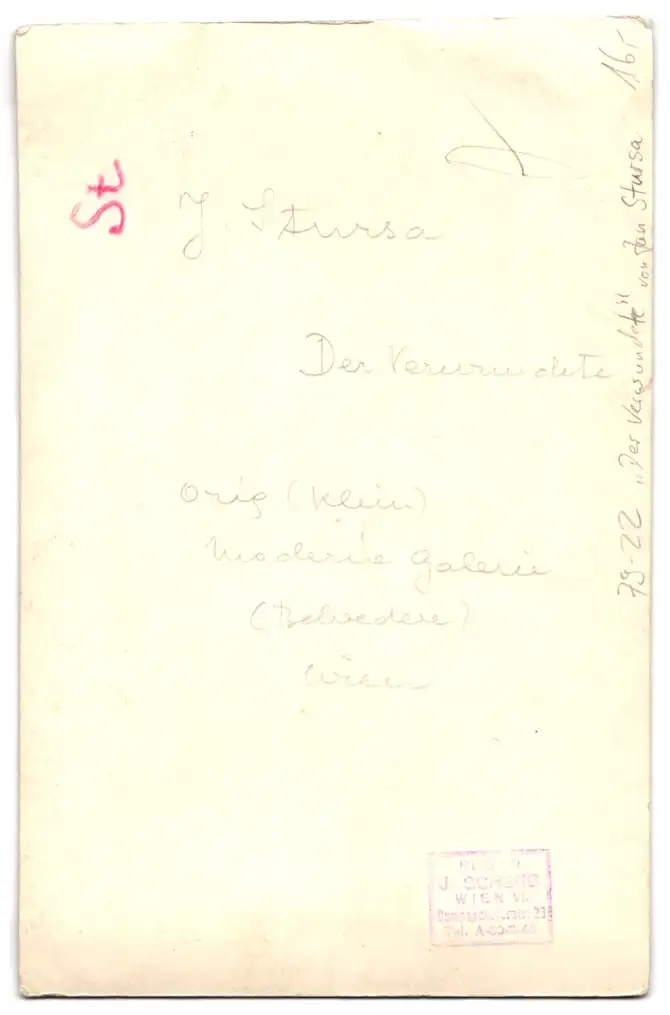 St
J. Stursa
Der Verwundete
Orig (klein)
Moderne Galerie
(Belvedere)
Wien
79-22 „Der Verwundete" von Jan Stursa 16,-
J. SCHERB
WIEN VI.
Tel.